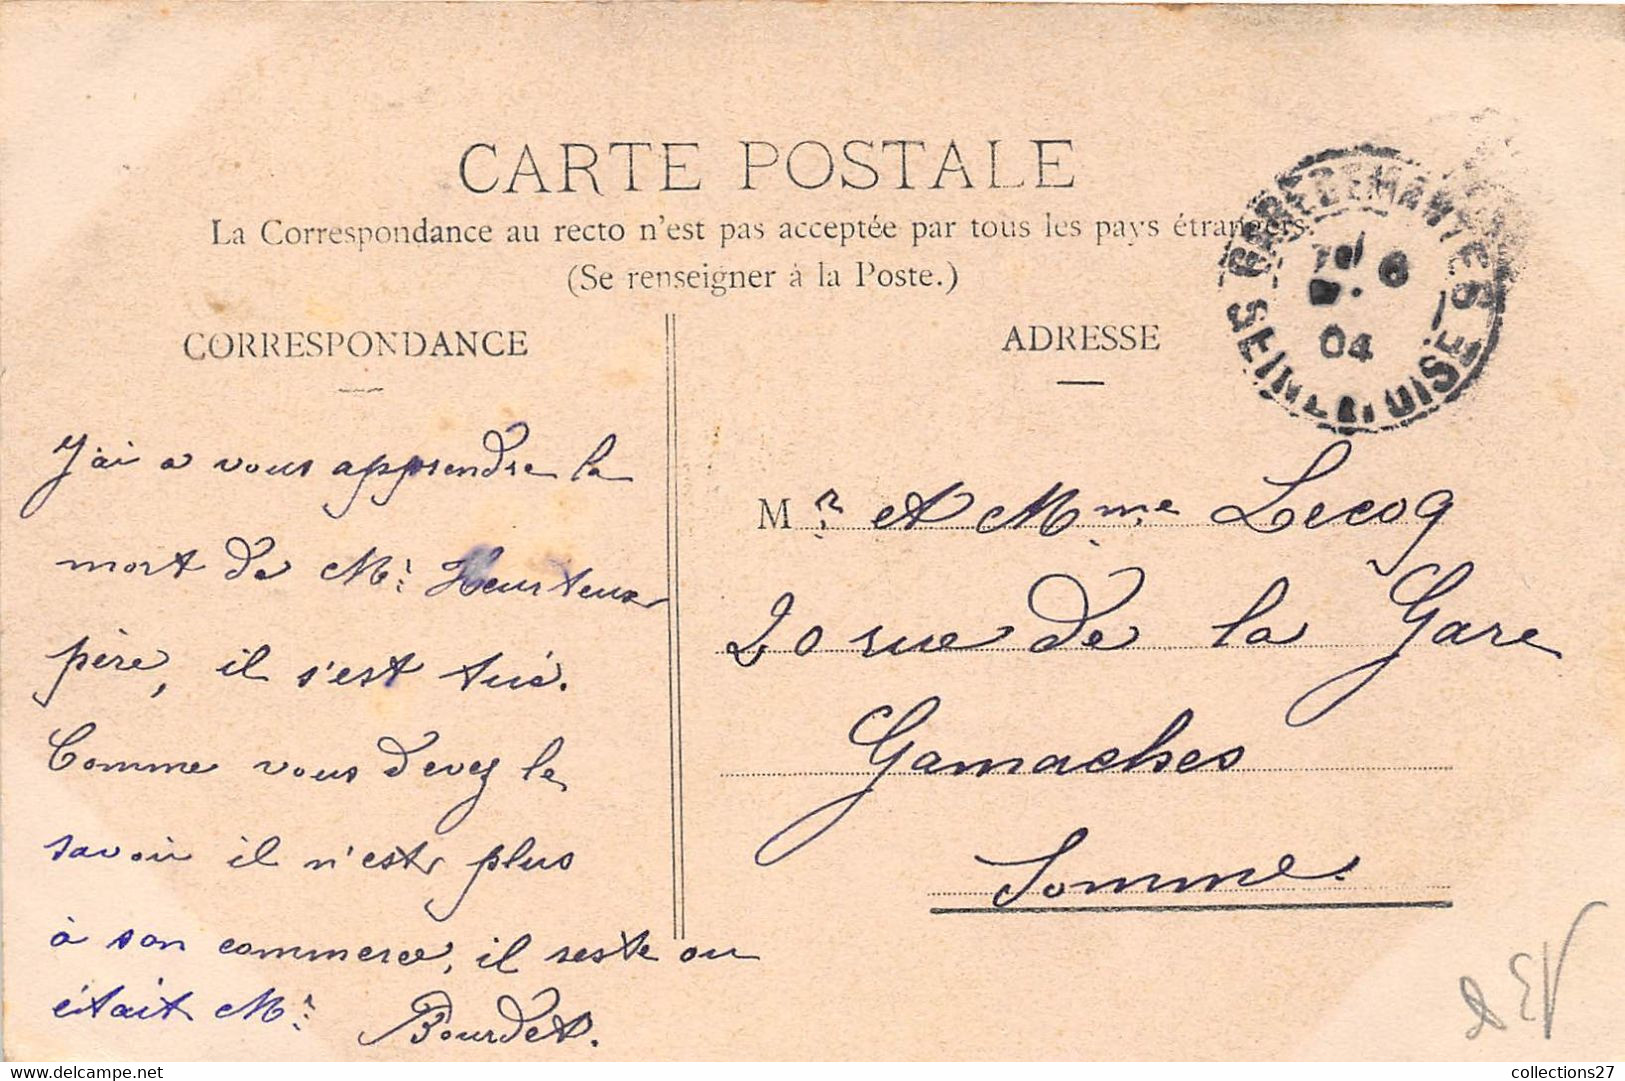 CARTE POSTALE
La Correspondance au recto n'est pas acceptée par tous les pays étrangers.
(Se renseigner à la Poste.)
CORRESPONDANCE
J'ai a vous apprendre la
mort de Mr Heurteux
père, il s'est tué.
Comme vous devez le
savoir il n'est plus
à son commerce, il reste ou
était Mr Bourdet.
ADRESSE
Mr et Mme Lecoq
20 rue de la Gare
Gamaches
Somme.
GARE DE MANTES
6
04
SEINE-ET-OISE
collections27